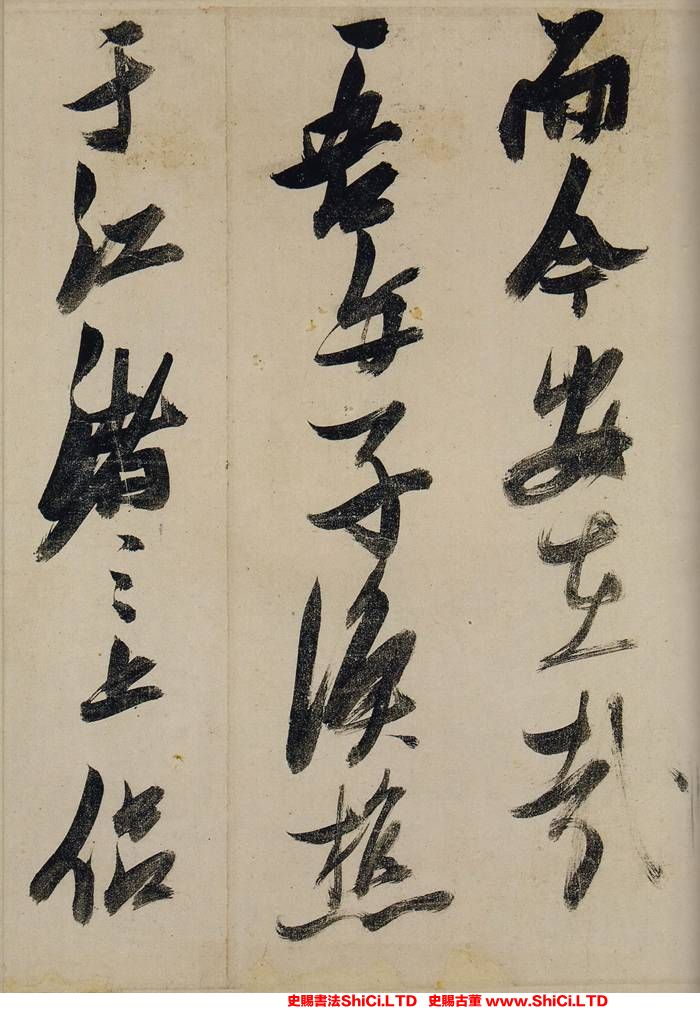 而今安在哉
吾与子漁樵
于江渚之上侣
史賜書法ShiCi.LTD 史賜古董 www.ShiCi.LTD